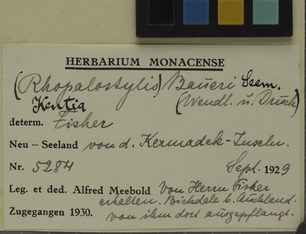 HERBARIUM MONACENSE
(Rhopalostylis) Baueri Seem.
Kentia (Wendl. u. Drude)
determ. Fisher
Neu-Seeland von d. Kermadek-Inseln.
Nr. 5284 Sept. 1929
Leg. et ded. Alfred Meebold von Herrn Fisher
erhalten. Birkdale b. Auckland.
Zugegangen 1930. von ihm dort ausgepflanzt.